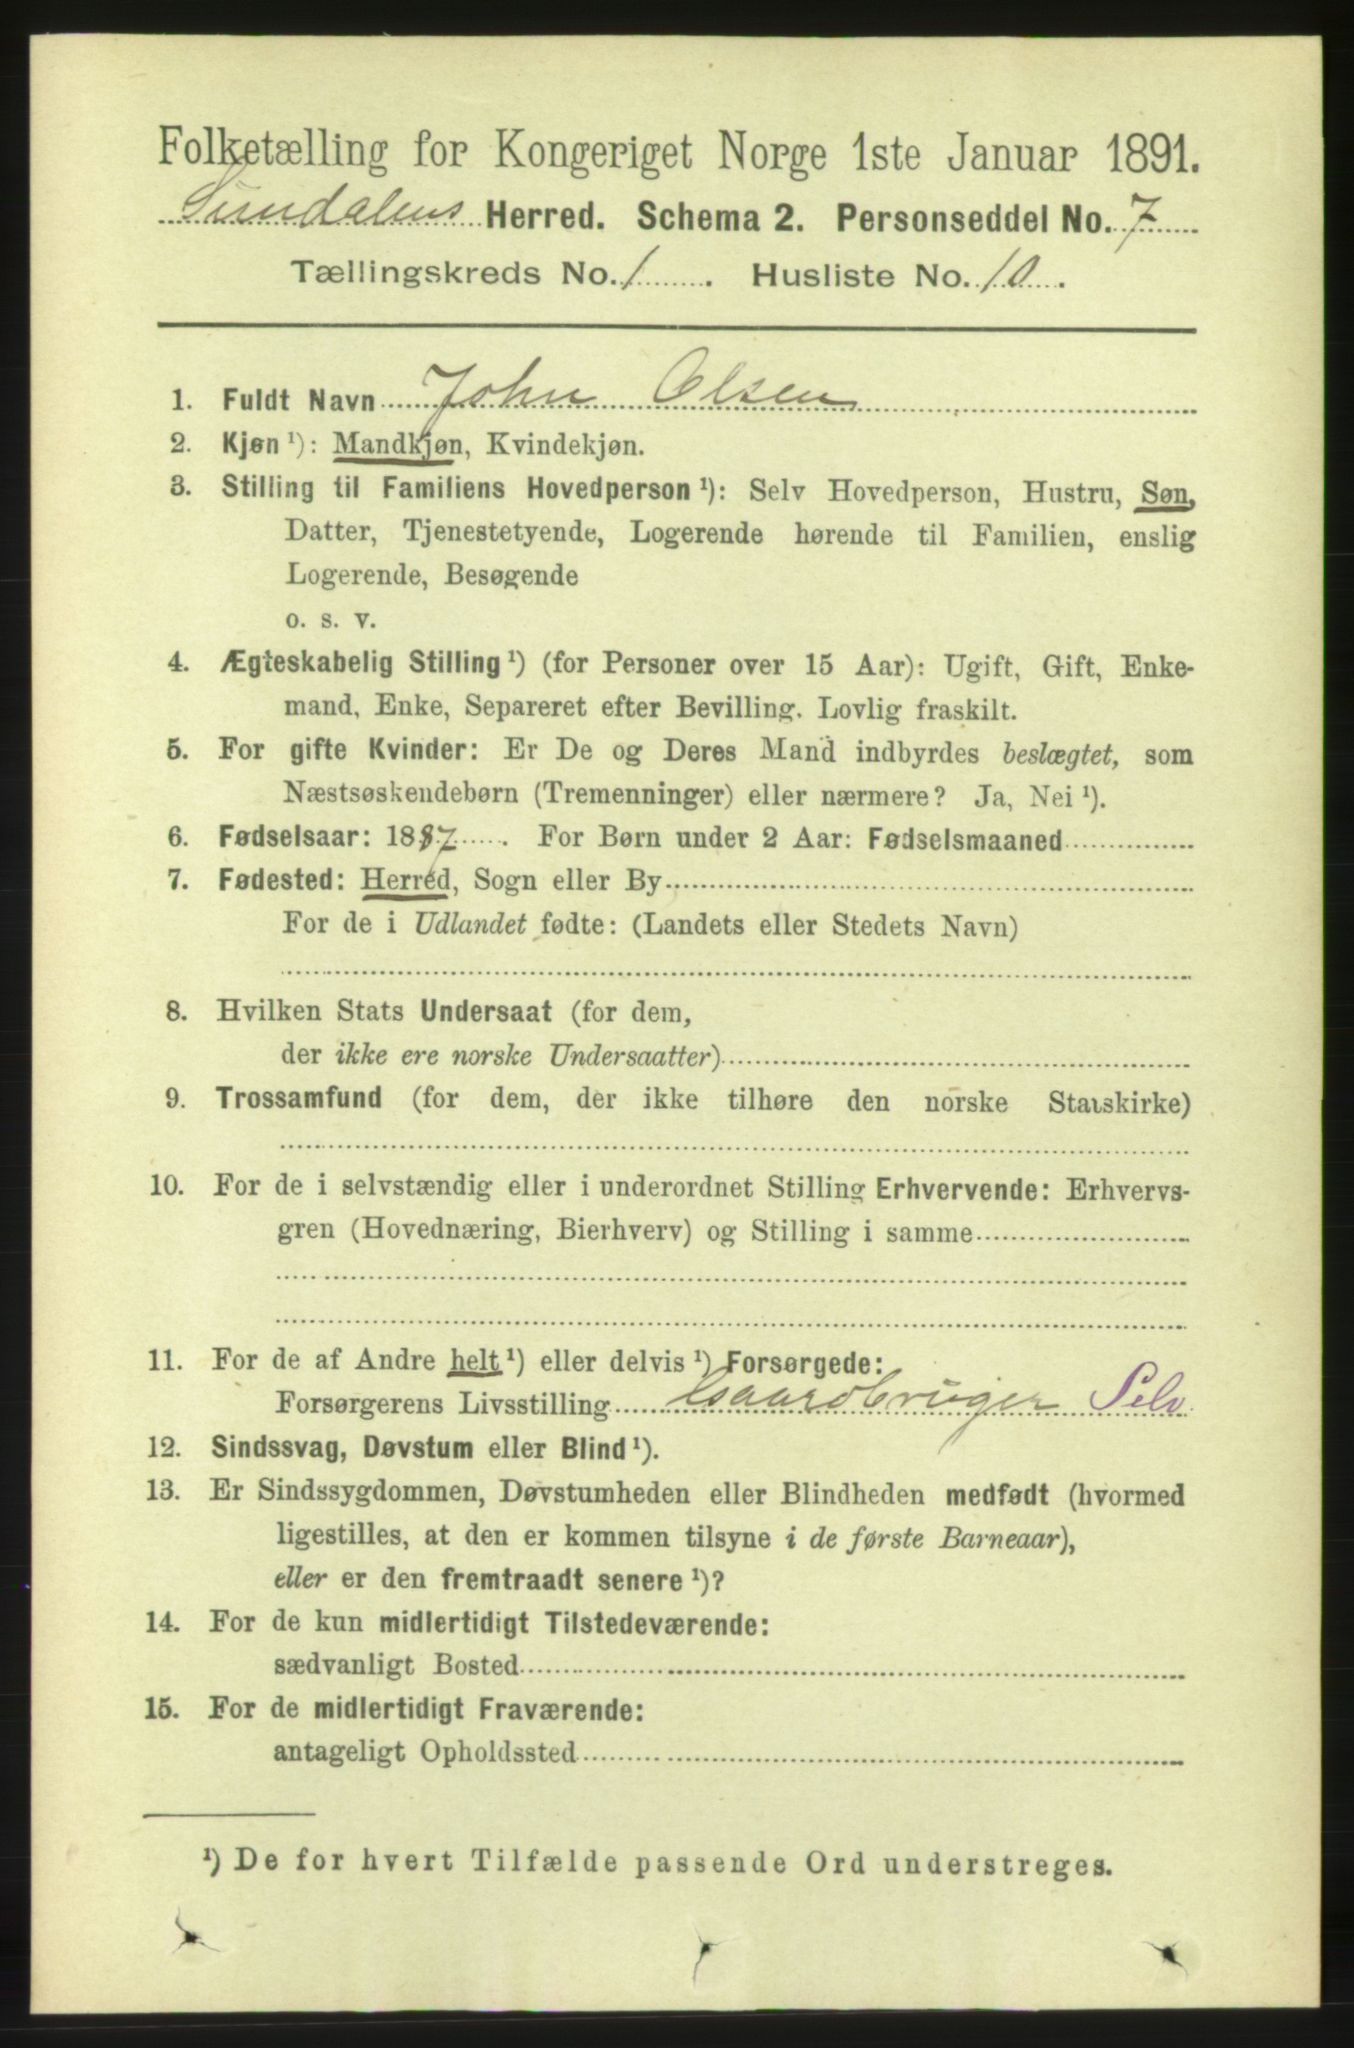 Folketælling for Kongeriget Norge 1ste Januar 1891.
Sundalens Herred. Schema 2. Personseddel No. 7
Tællingskreds No. 1. Husliste No. 10.
1. Fuldt Navn John Olsen
2. Kjøn ¹): Mandkjøn, Kvindekjøn.
3. Stilling til Familiens Hovedperson ¹): Selv Hovedperson, Hustru, Søn,
Datter, Tjenestetyende, Logerende hørende til Familien, enslig
Logerende, Besøgende
o. s. v.
4. Ægteskabelig Stilling ¹) (for Personer over 15 Aar): Ugift, Gift, Enke-
mand, Enke, Separeret efter Bevilling. Lovlig fraskilt.
5. For gifte Kvinder: Er De og Deres Mand indbyrdes beslægtet, som
Næstsøskendebørn (Tremenninger) eller nærmere? Ja, Nei ¹).
6. Fødselsaar: 1887. For Børn under 2 Aar: Fødselsmaaned
7. Fødested: Herred, Sogn eller By
For de i Udlandet fødte: (Landets eller Stedets Navn)
8. Hvilken Stats Undersaat (for dem,
der ikke ere norske Undersaatter)
9. Trossamfund (for dem, der ikke tilhøre den norske Statskirke)
10. For de i selvstændig eller i underordnet Stilling Erhvervende: Erhvervs-
gren (Hovednæring, Bierhverv) og Stilling i samme
11. For de af Andre helt ¹) eller delvis ¹) Forsørgede:
Forsørgerens Livsstilling Gaardbruger Selv
12. Sindssvag, Døvstum eller Blind ¹).
13. Er Sindssygdommen, Døvstumheden eller Blindheden medfødt (hvormed
ligestilles, at den er kommen tilsyne i de første Barneaar),
eller er den fremtraadt senere ¹)?
14. For de kun midlertidigt Tilstedeværende:
sædvanligt Bosted
15. For de midlertidigt Fraværende:
antageligt Opholdssted
¹) De for hvert Tilfælde passende Ord understreges.